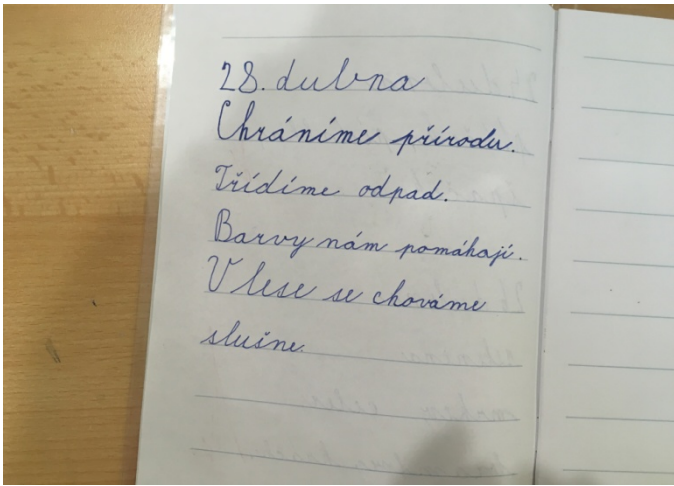 28. dubna
Chráníme přírodu.
Třídíme odpad.
Barvy nám pomáhají.
V lese se chováme
slušne.